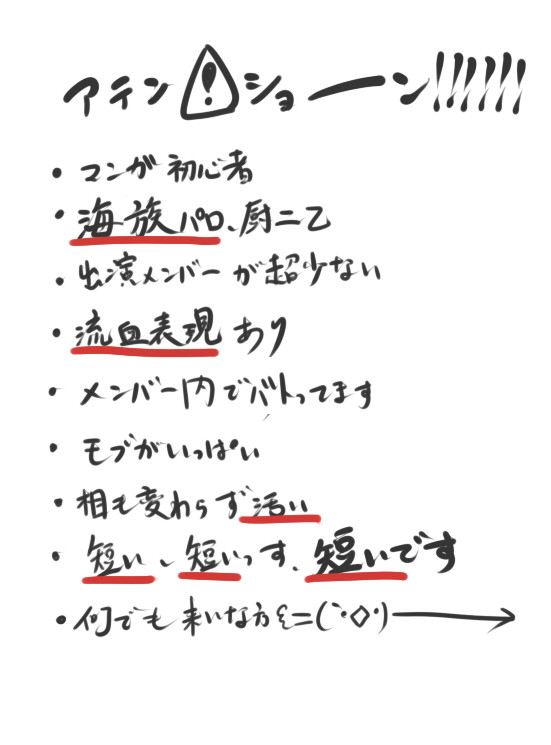 アテン⚠ション!!!!!!
・マンガ初心者
・海族パロ、厨二乙
・出演メンバーが超少ない
・流血表現あり
・メンバー内でバトってます
・モブがいっぱい
・相も変わらず汚い
・短い、短いっす、短いです
・何でも来いな方ξ=(`・◇・)→